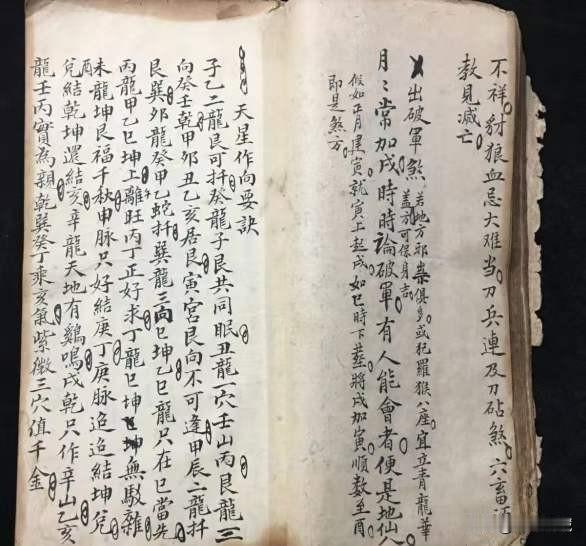 不祥。豺狼血忌大难當。刀兵連及刀砧煞。六畜
敎見滅亡。
出破軍煞
若地方邪祟俱多。或犯羅猴八座。宜立青龍華
盖於可保身吉。
月〻常加戌時時論破軍。有人能會者。便是地仙
假如正月建寅就寅上起戌。如巳時下葬將戌加寅順數至酉
即是煞方。
天星作向要訣
子乙二龍艮可扦。癸龍子艮共同眠。丑龍一穴壬山丙。艮龍三
向癸壬乾。甲卯丑乙亥居艮。寅宮艮向不可逢。甲辰二龍扦
艮巽。卯龍癸甲乙蛇扦。巽龍三向巳坤乙。巳龍只在巳當先
丙龍甲乙巳坤上。離旺丙丁正好求。丁龍巳坤坤無駁雜
未龍坤艮福千秋。申脉只好結庚丁。庚脉迢迢結坤兌
酉兌結乾坤還結亥。辛龍天地有鷄鳴。戌乾只作辛山乙。亥
龍壬丙實為親。乾巽癸丁乘亥氣。紫微三穴值千金。